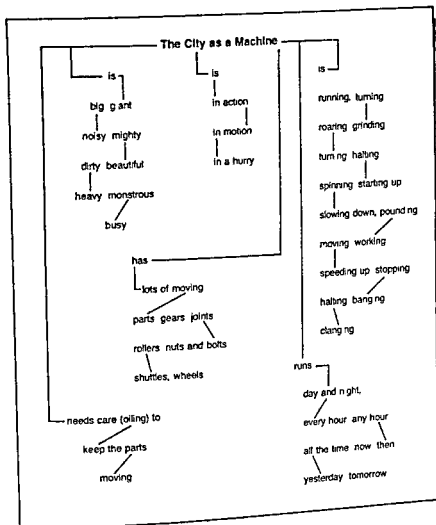 The City as a Machine
is
big giant
noisy mighty
dirty beautiful
heavy monstrous
busy
is
in action
in motion
in a hurry
is
running, turning
roaring grinding
turning halting
spinning starting up
slowing down, pounding
moving working
speeding up stopping
halting banging
clanging
has
lots of moving
parts gears joints
rollers nuts and bolts
shuttles, wheels
runs
day and night,
every hour any hour
all the time now then
yesterday tomorrow
needs care (oiling) to
keep the parts
moving